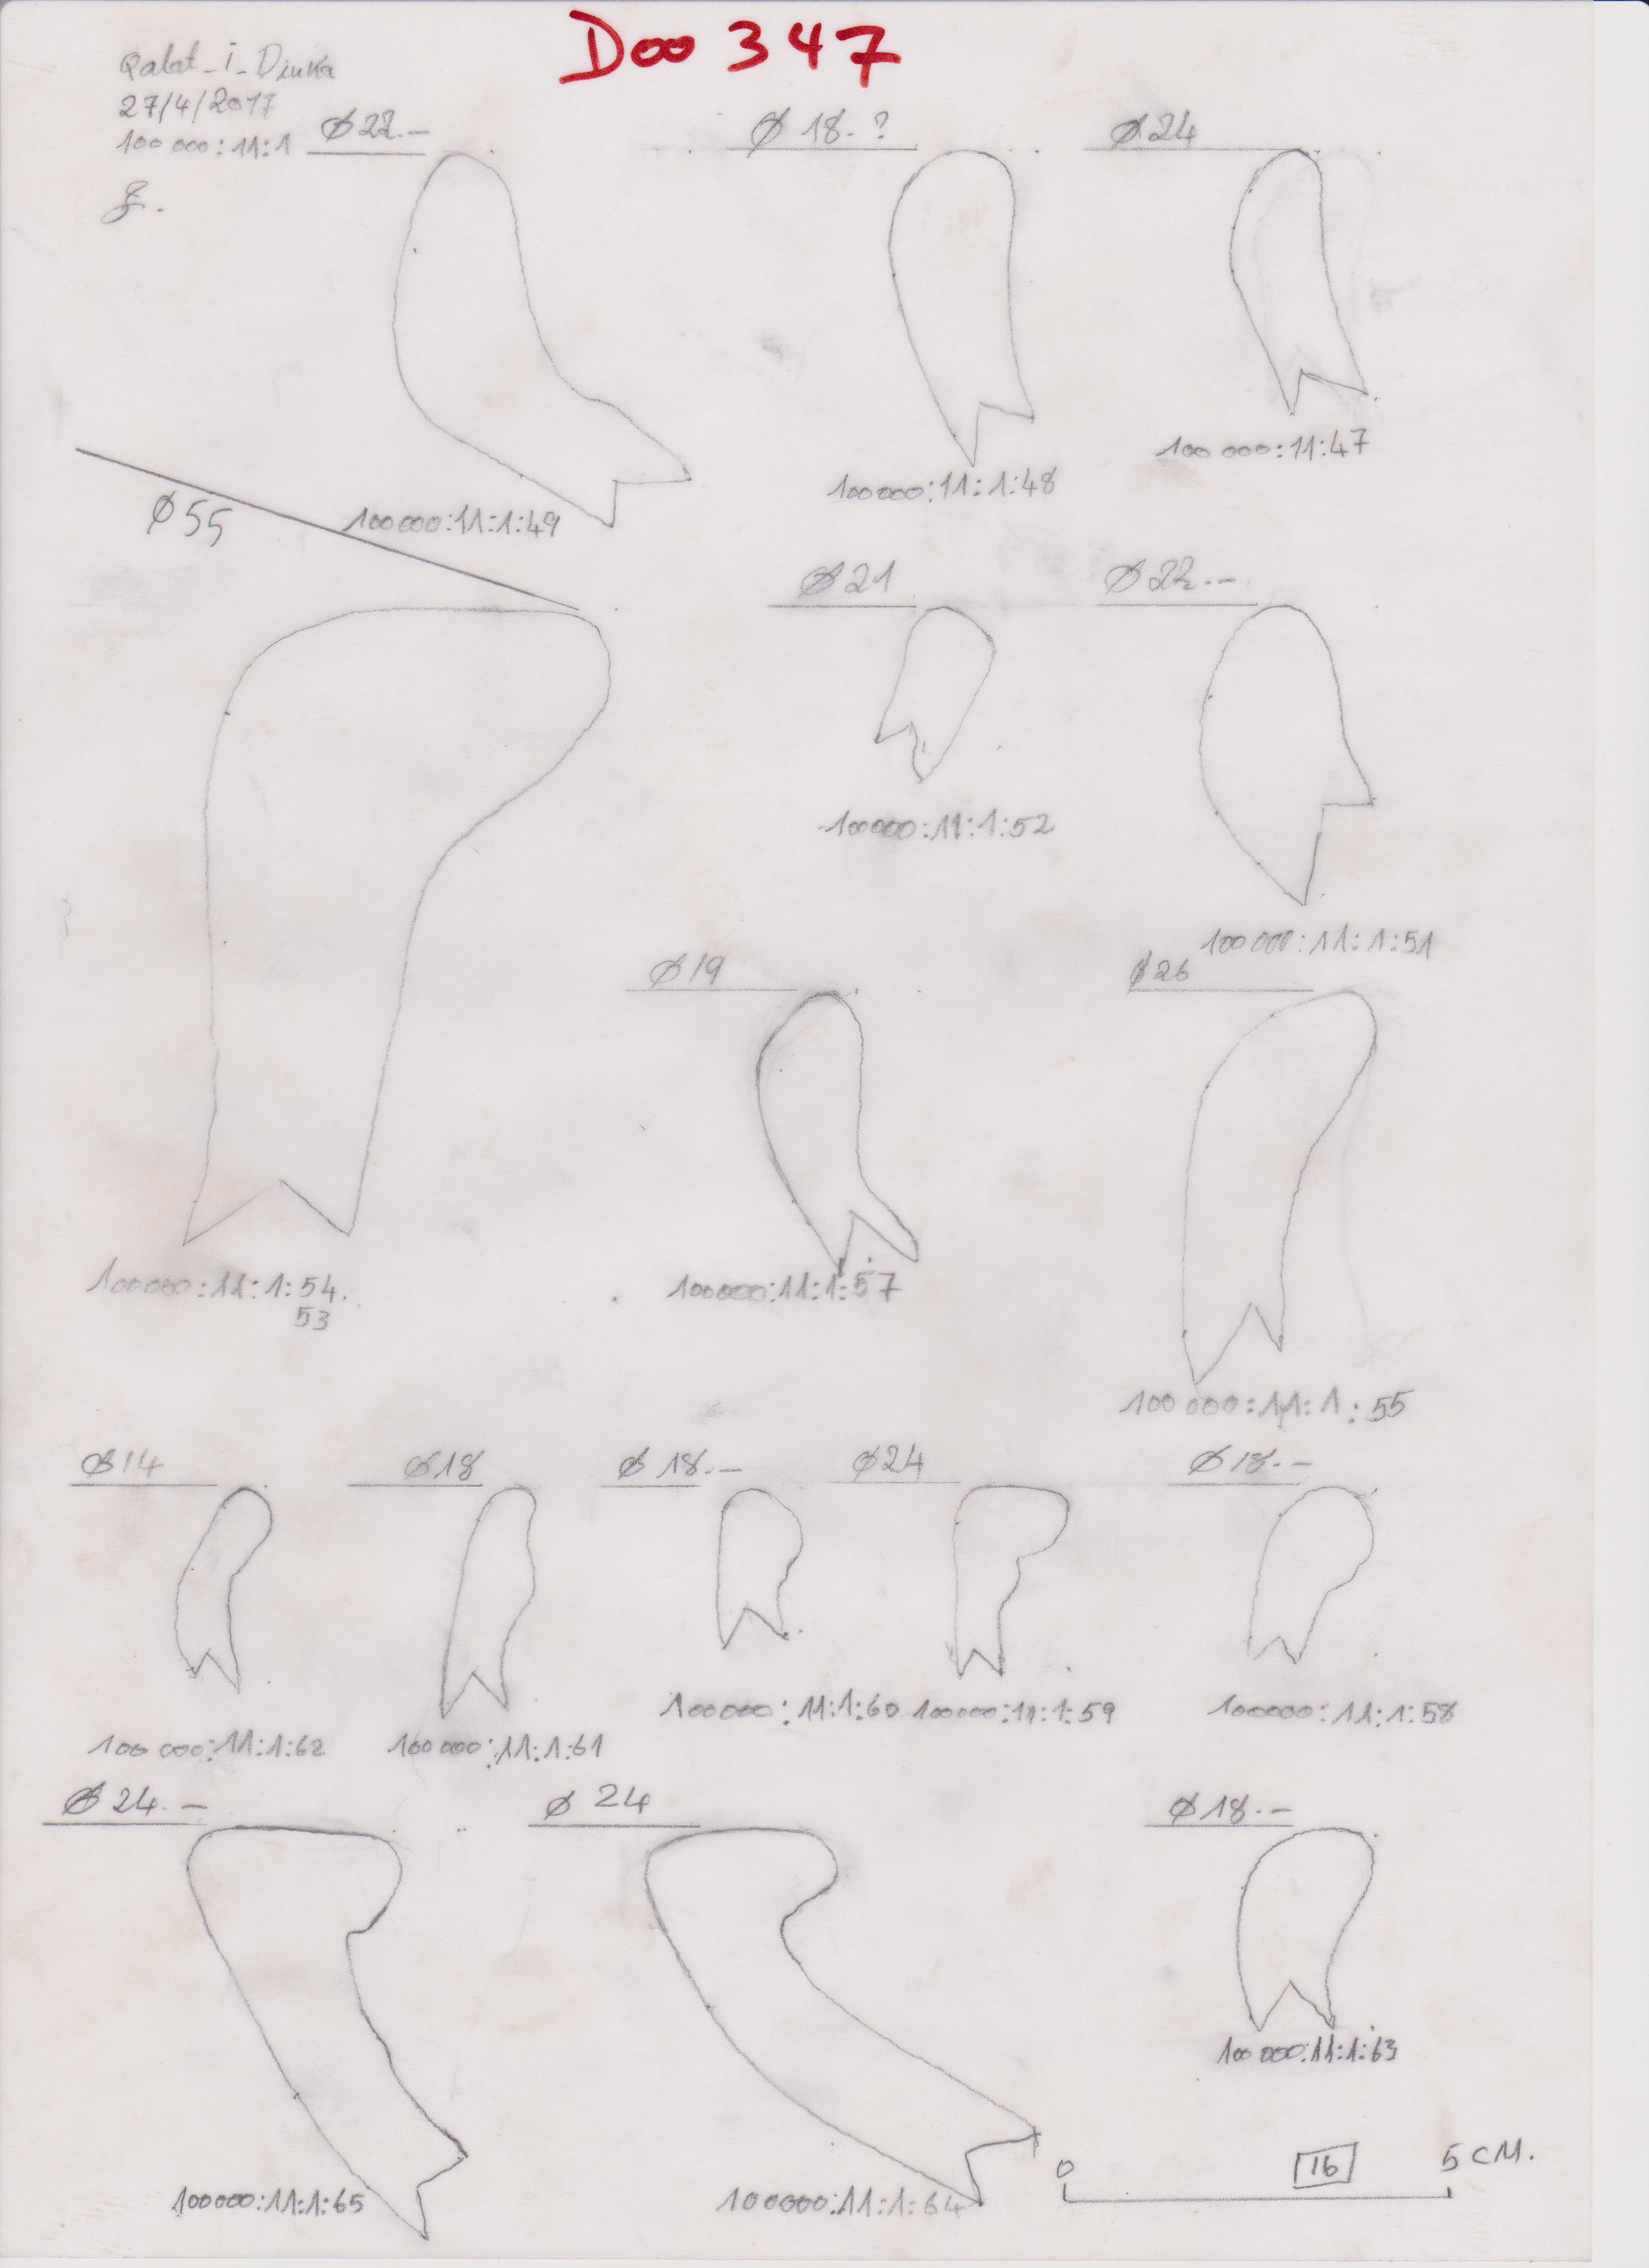 D00 347
Qalat-i-Dinka
27/4/2017
100 000:11:1
Ø22.-
Ø 18.?
Ø24
100 000:11:47
100000:11:1:48
Ø55
100000:11:1:49
Ø21
Ø22.-
100000:11:1:52
100 000:11:1:51
Ø19
Ø26
100000:11:1:54.
53
100000:11:1:57
100 000:11:1:55
Ø14
Ø18
Ø 18.-
Ø24
Ø18.-
100000:11:1:60
100000:11:1:59
100000:11:1:58
100 000:11:1:62
100 000:11:1:61
Ø 24.-
Ø 24
Ø18.-
100 000:11:1:63
0
16
5 CM.
100000:11:1:65
100000:11:1:64